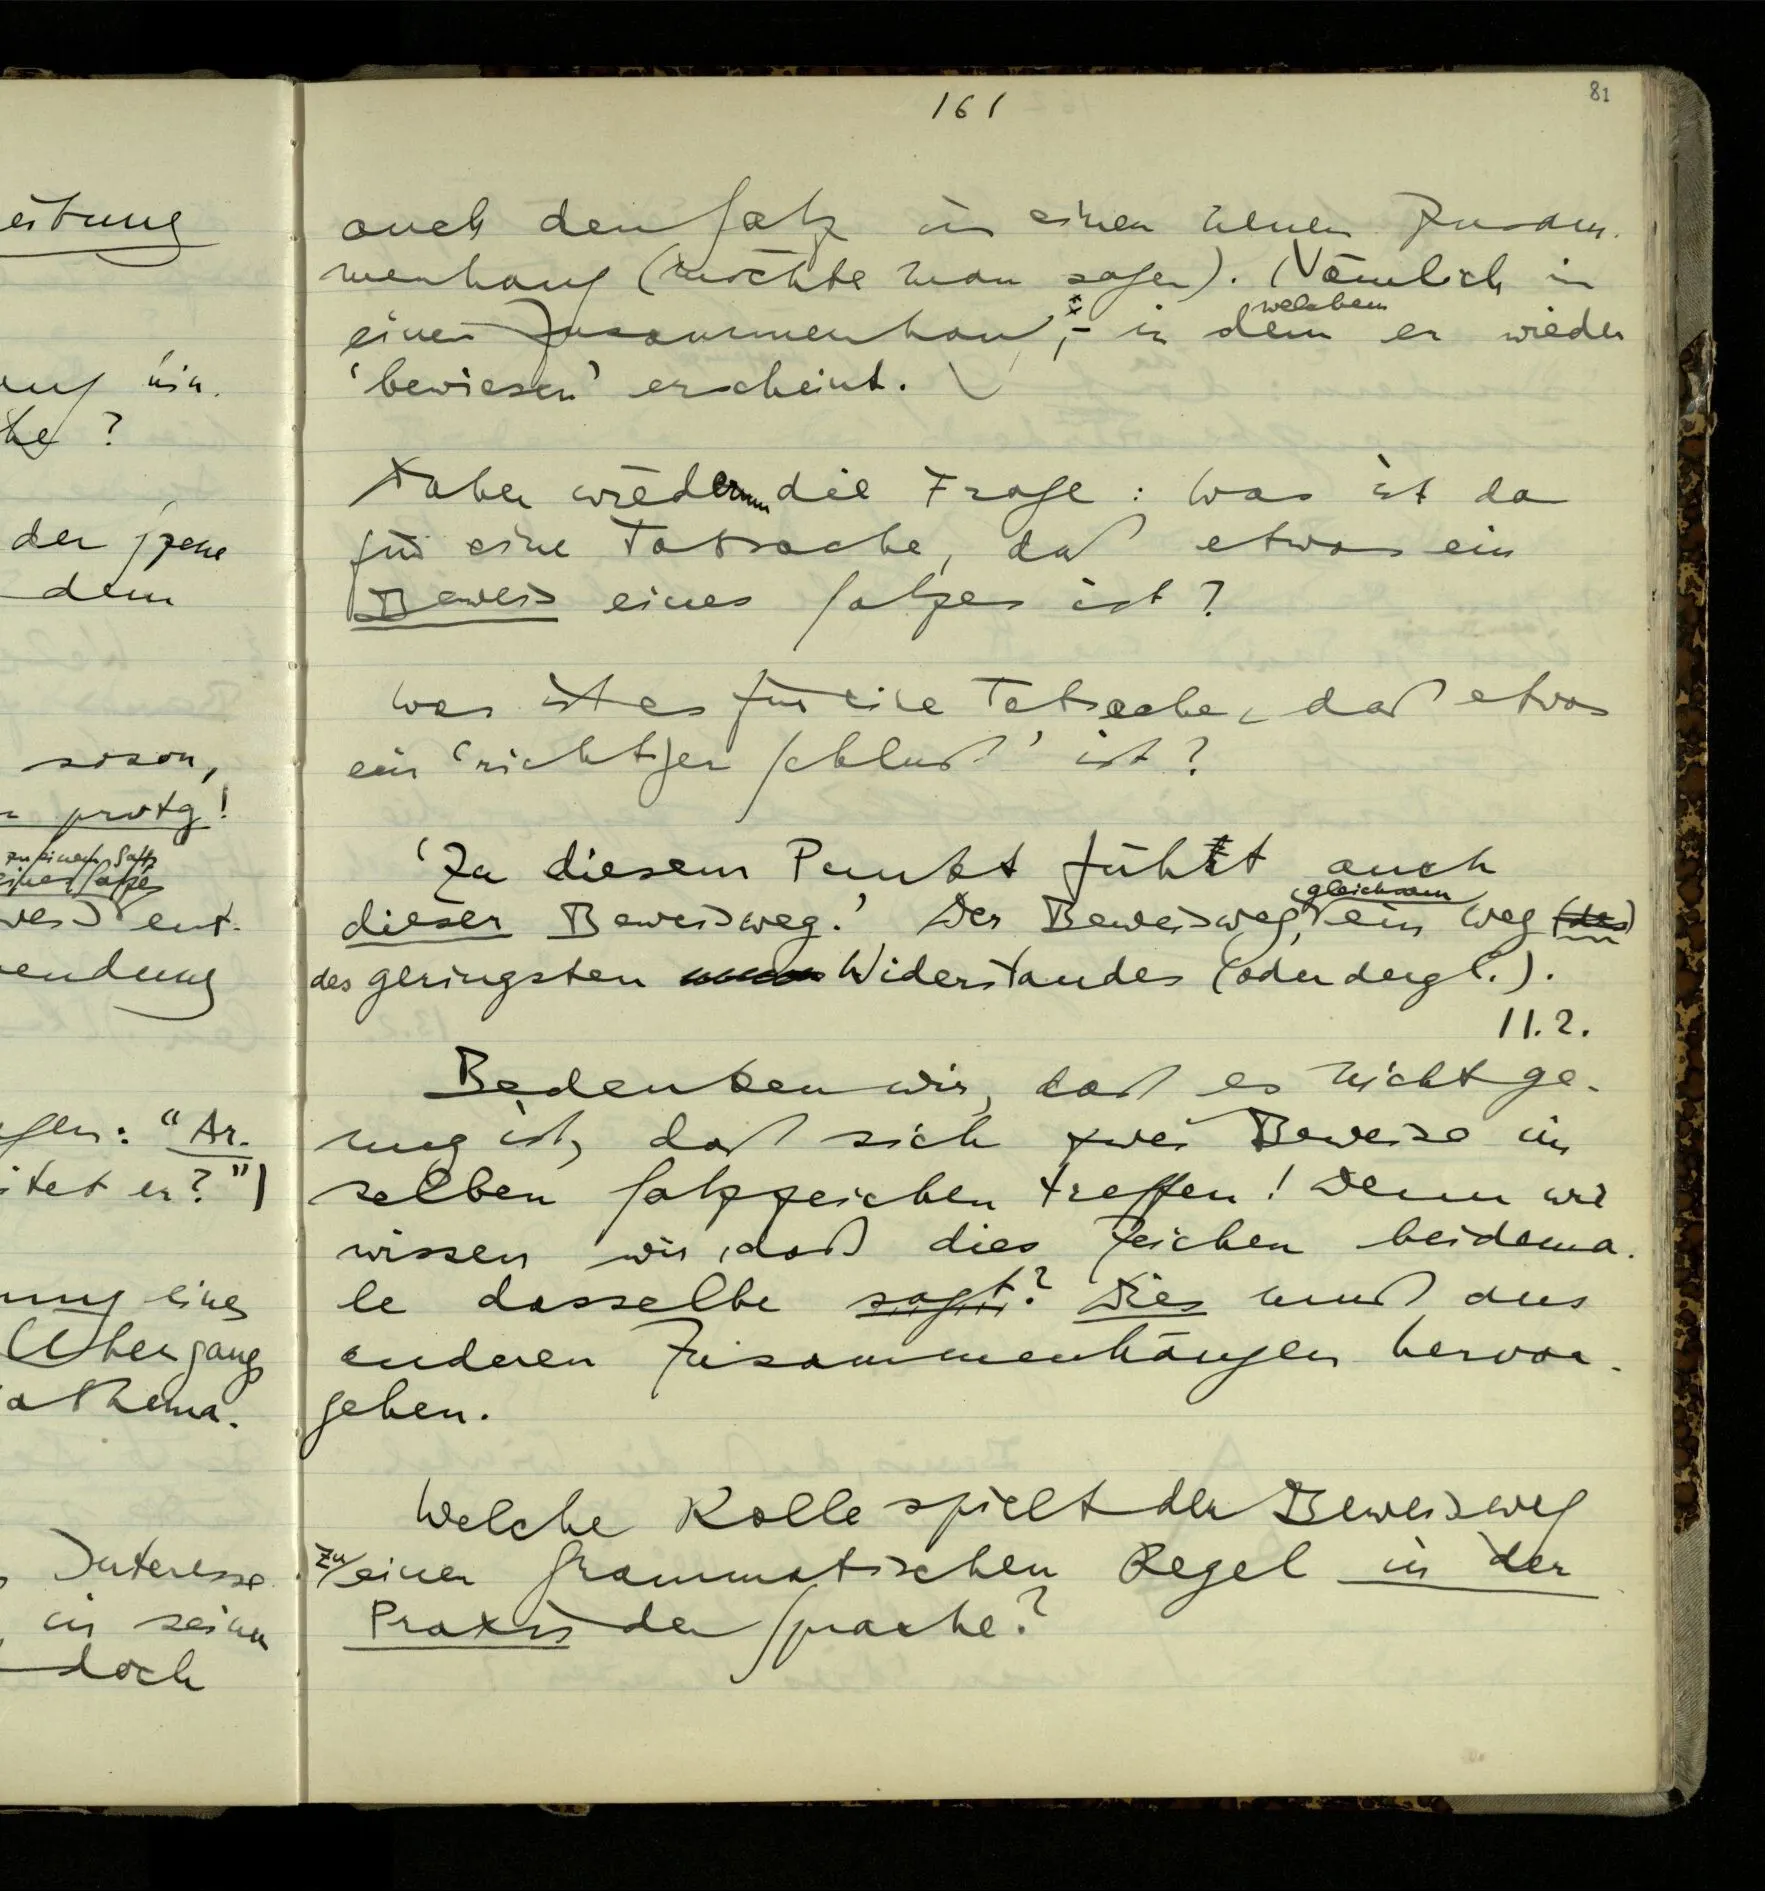 161
81
eitung
auf hin.
he ?
der jene
dem
soson,
protg!
zu einem Satz
eines Satzes
weis ent-
wendung
gen: “Ar-
itet er?”)
ung eines
Übergang
athema-
Interesse
in seiner
doch
auch den Satz in einen neuen Zusam-
menhang (möchte man sagen). (Nämlich in
einen Zusammenhang, – in dem er wieder
welchem
‘bewiesen’ erscheint.
Aber wiederum die Frage: Was ist da
für eine Tatsache, daß etwas ein
Beweis eines Satzes ist?
Was ist es für eine Tatsache, daß etwas
ein ‘richtiger Schluß’ ist?
‘Zu diesem Punkt führt auch
dieser Beweisweg.’ Der Beweisweg, gleichsam ein Weg (des)
des geringsten Widerstandes (oder dergl.).
11.2.
Bedenken wir, daß es nicht ge-
nug ist, daß sich zwei Beweise im
selben Satzzeichen treffen! Denn wie
wissen wir, daß dies Zeichen beidema-
le dasselbe sagt? Dies muß aus
anderen Zusammenhängen hervor-
gehen.
Welche Rolle spielt der Beweisweg
zu einer grammatischen Regel in der
Praxis der Sprache?